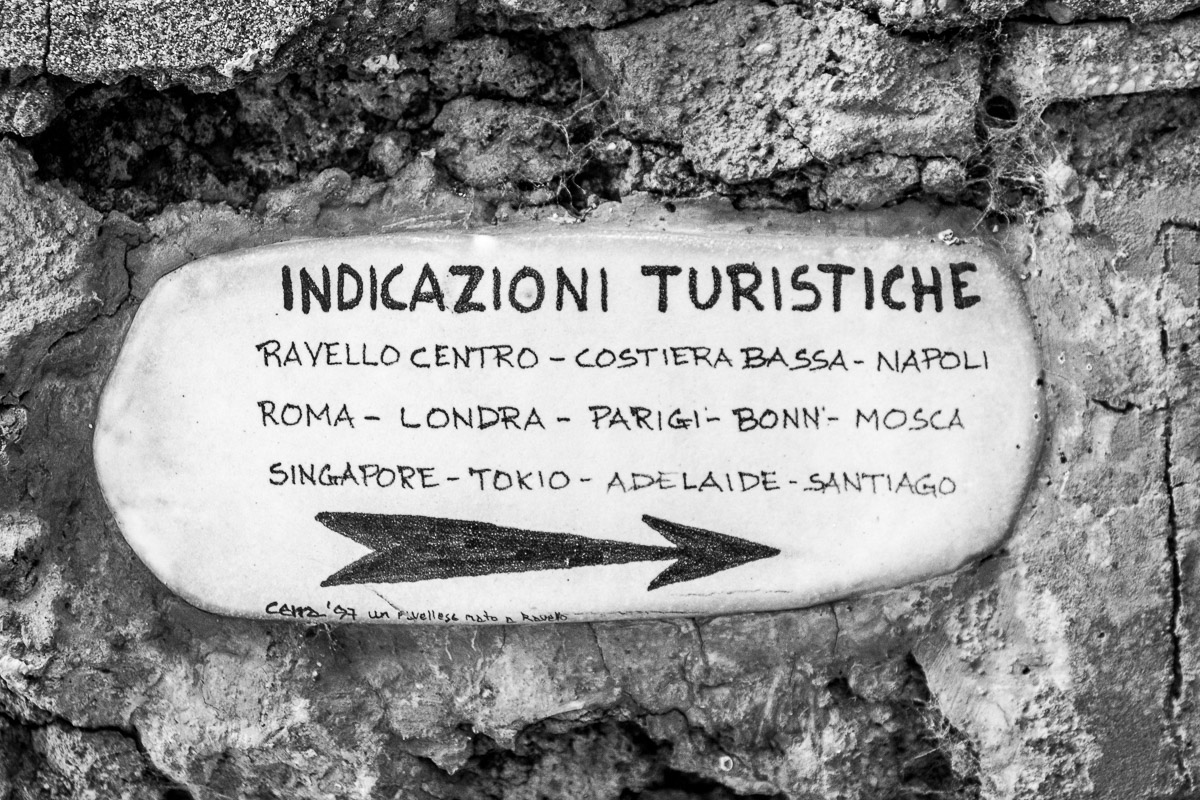 INDICAZIONI TURISTICHE
RAVELLO CENTRO - COSTIERA BASSA - NAPOLI
ROMA - LONDRA - PARIGI - BONN - MOSCA
SINGAPORE - TOKIO - ADELAIDE - SANTIAGO
'97 un ravellese nato a Ravello